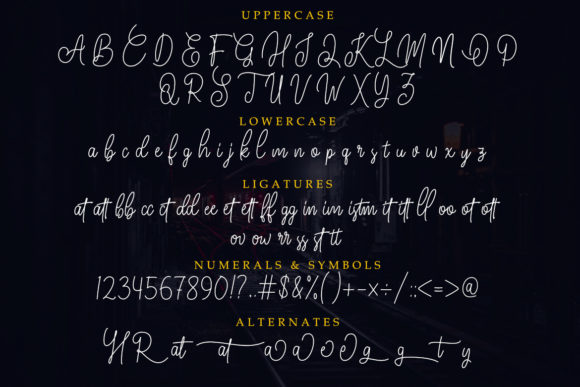 UPPERCASE
A B C D E F G H I J K L M N O P
Q R S T U V W X Y Z
LOWERCASE
a b c d e f g h i j k l m n o p q r s t u v w x y z
LIGATURES
at att bb cc ct dd ee et ett ff gg in im istm it itt ll oo ot ott
ov ow rr ss st tt
NUMERALS & SYMBOLS
1234567890!?..#$&%()+-×÷/:;<=>@
ALTERNATES
H R at at a a O O g g t y